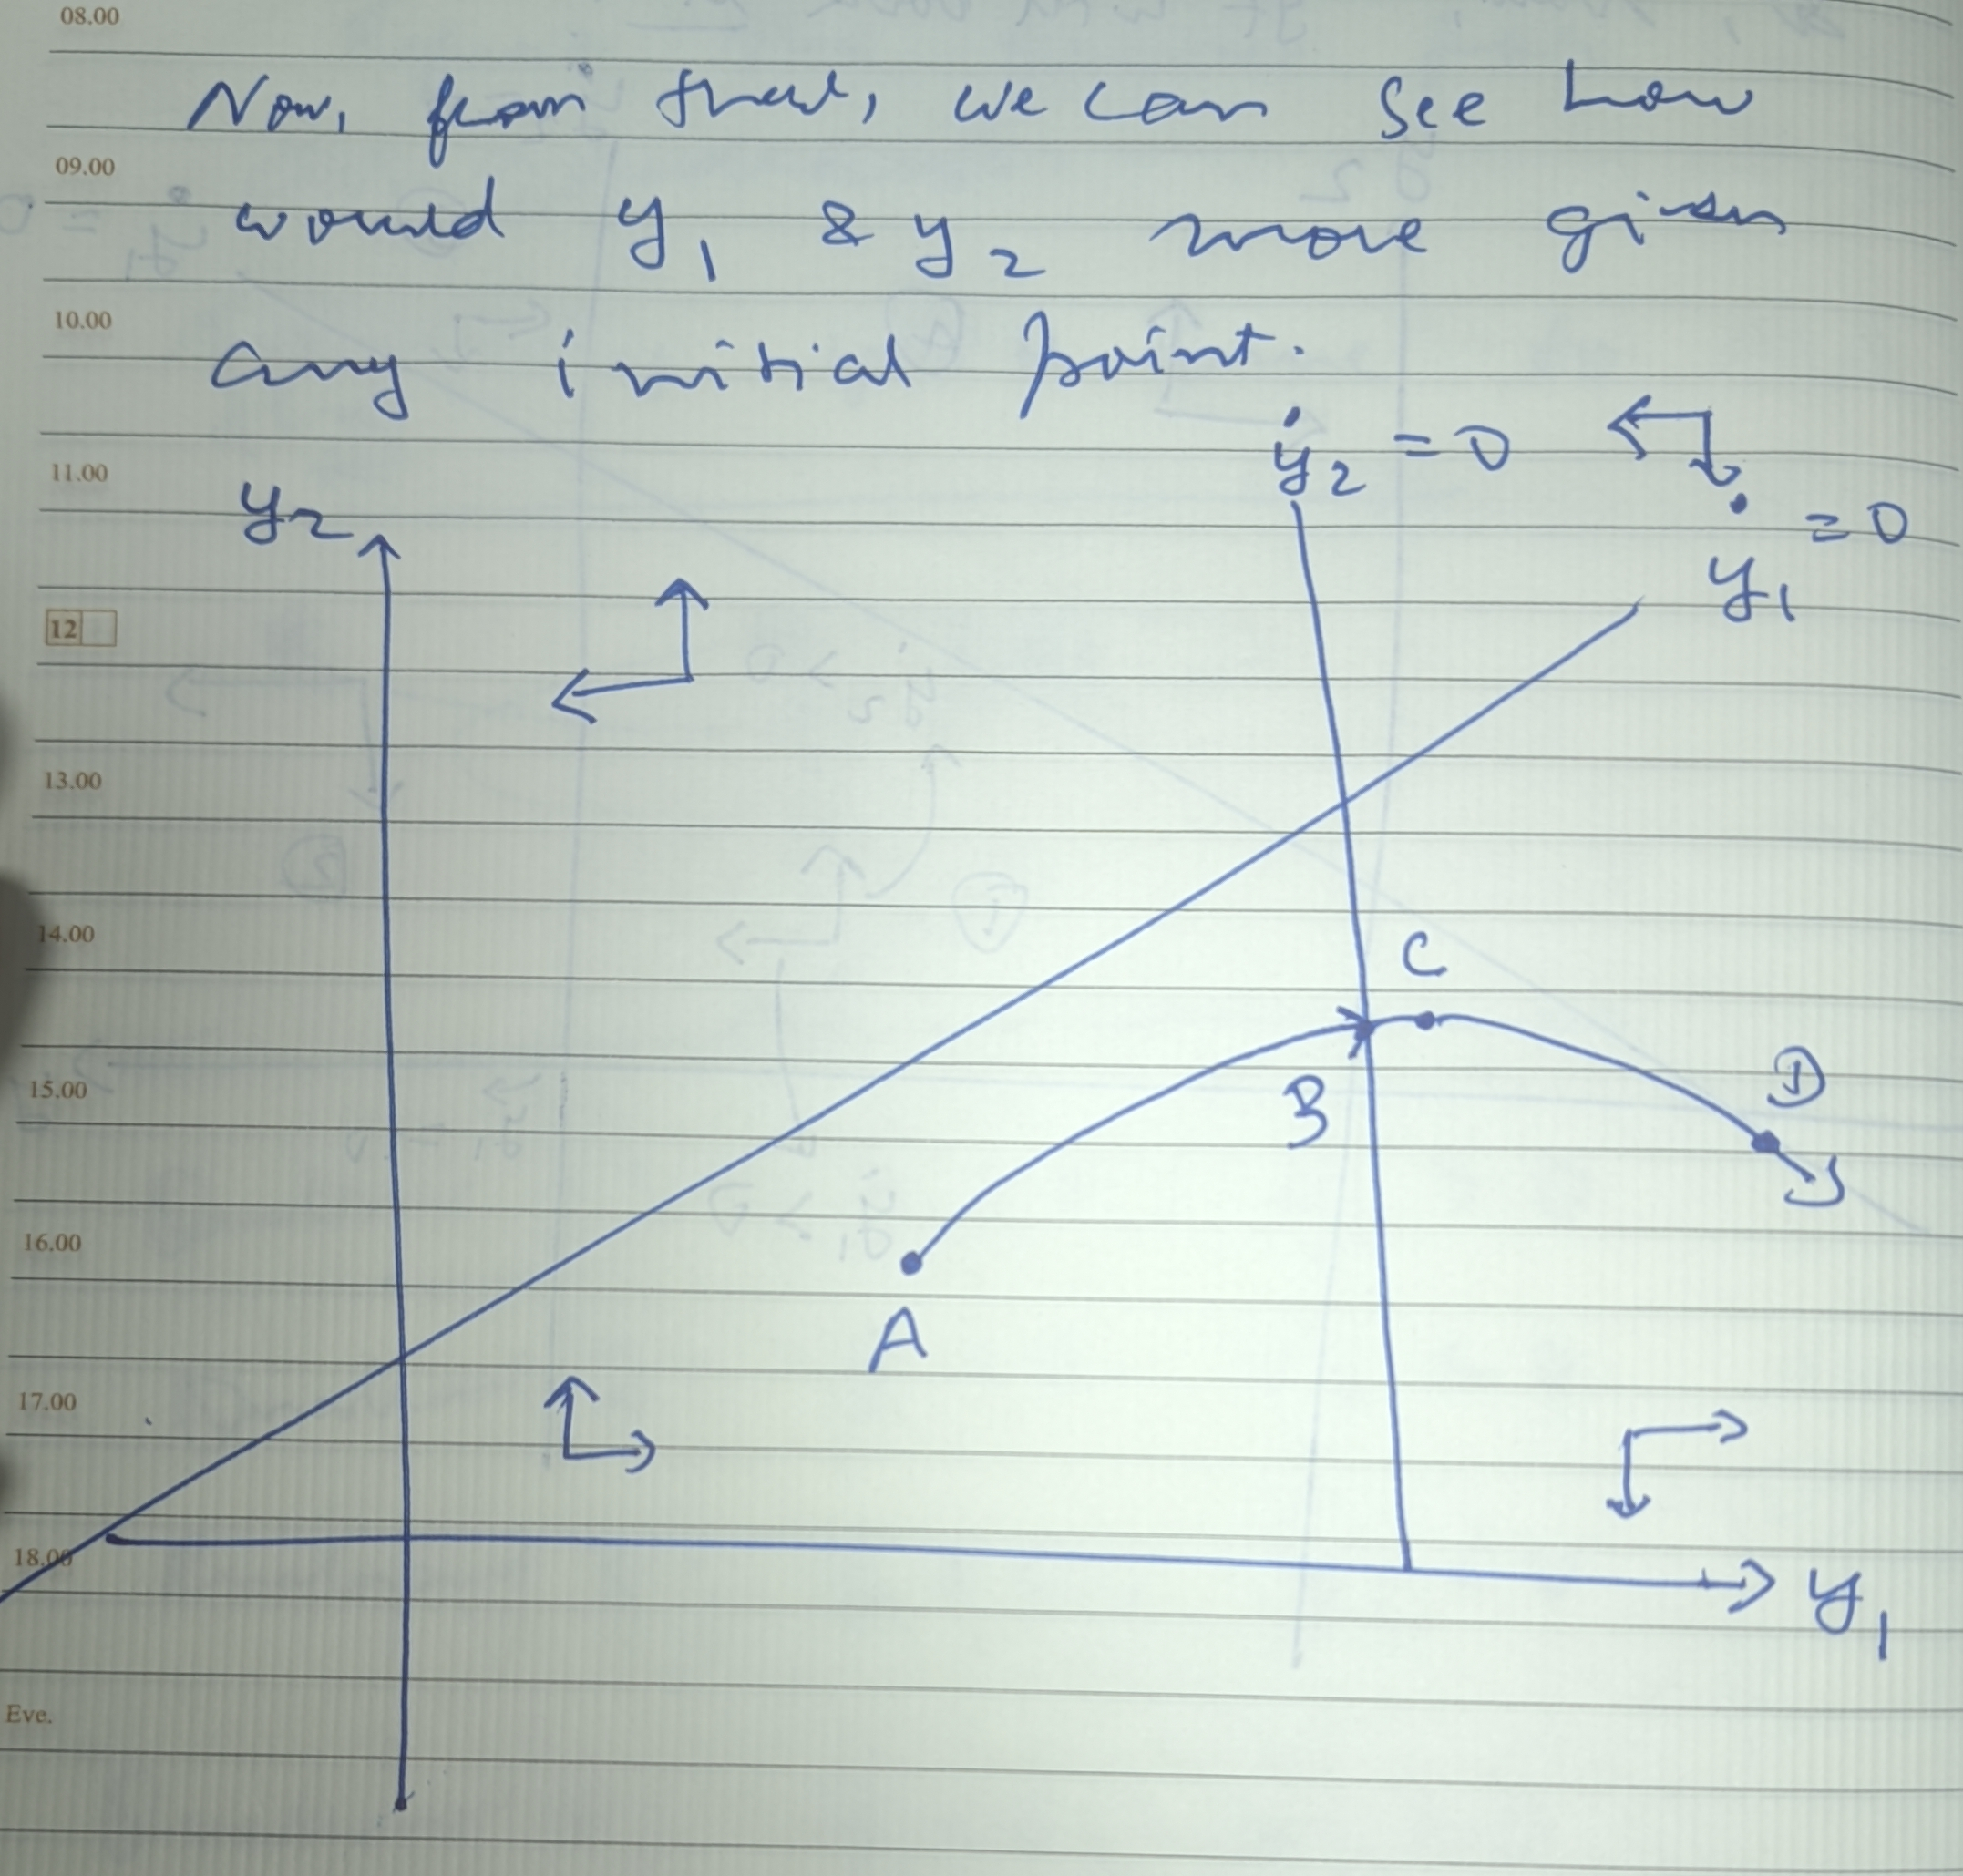 08.00
Now, from that, we can see how
09.00
would y₁ & y₂ move given
10.00
any initial point.
ẏ₂ = 0
11.00
y₂
ẏ₁ = 0
12
13.00
14.00
C
15.00
D
B
16.00
A
17.00
18.00
y₁
Eve.